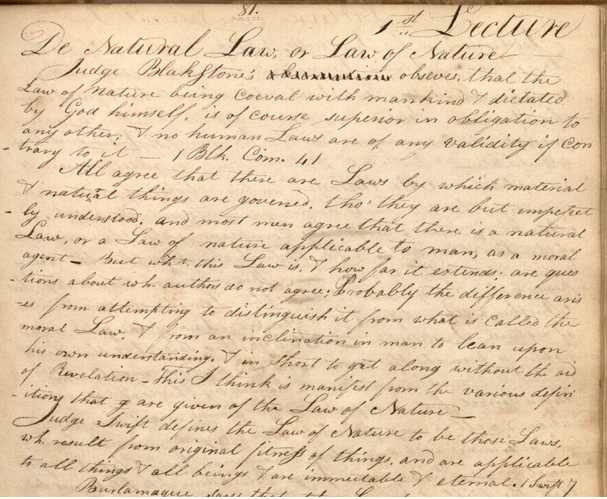 81.
1st Lecture
De Natural Law, or Law of Nature
Judge Blakstone, observes, that the
Law of Nature being coeval with mankind & dictated
by God himself, is of course superior in obligation to
any other, & no human Laws are of any validity if con
trary to it — 1 Blk. Com. 41
All agree that there are Laws by which material
& natural things are govened, tho' they are but impefect
ly understood, and most men agree that there is a natural
Law, or a Law of nature applicable to man, as a moral
agent — But wht. this Law is, & how far it extends, are ques
tions about wh. authors do not agree; Probably the difference aris
es from attempting to distinguish it from what is called the
moral Law, & from an inclination in man to lean upon
his own understanding, & in short to get along without the aid
of Revelation — This I think is manifest from the various defin
itions that are given of the Law of Nature —
Judge Swift defines the Law of Nature to be those Laws,
wh. result from original fitness of things, and are applicable
to all things & all beings & are immutable & eternal. 1 Swift 7
Burlamaque says that the